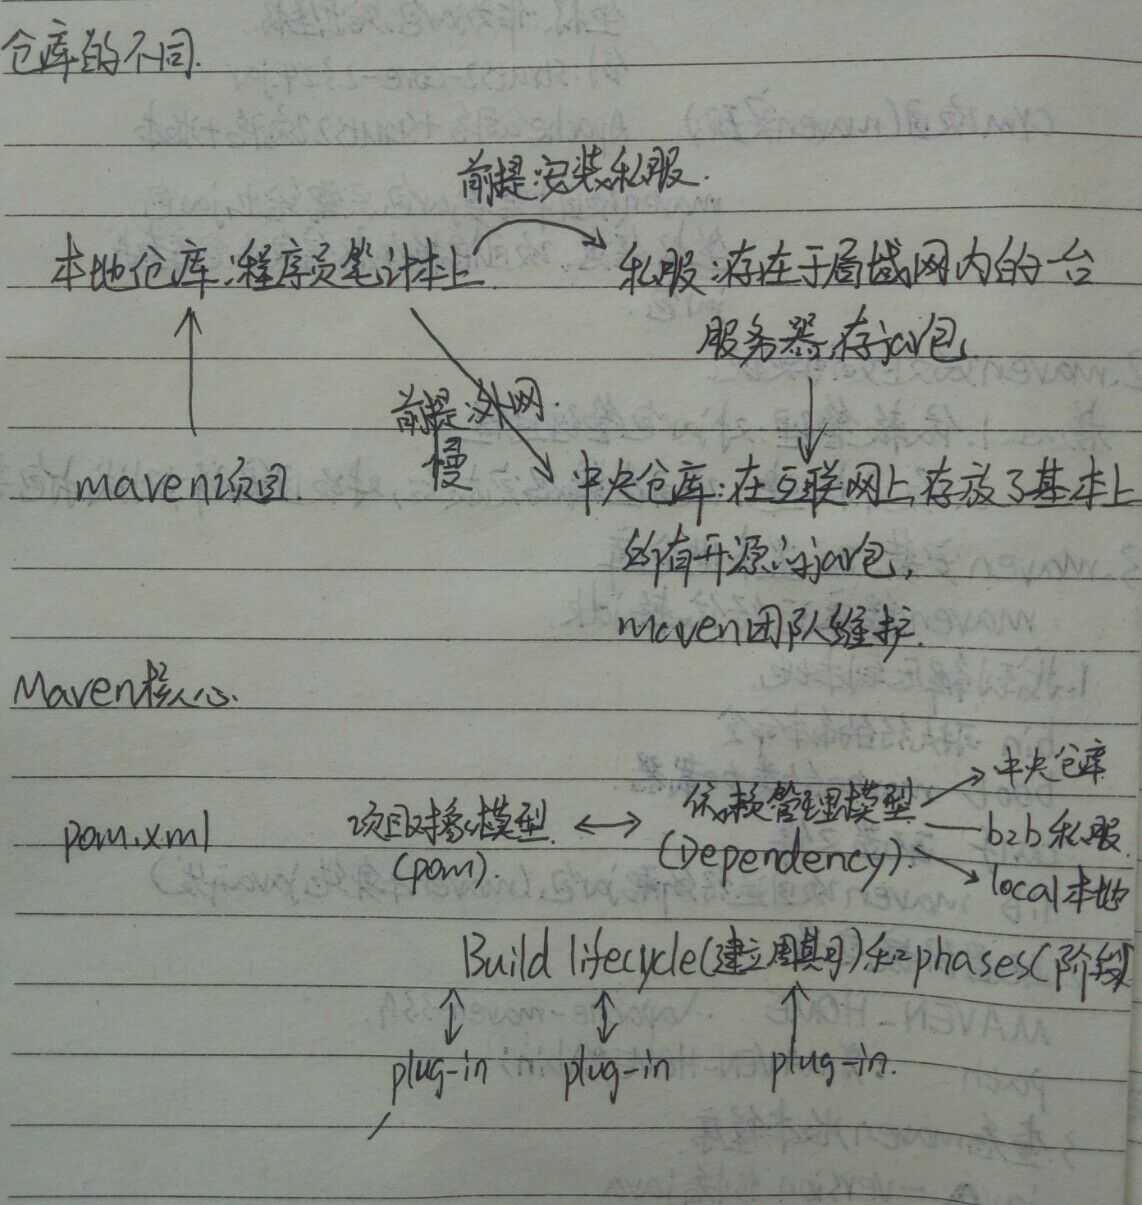 仓库的不同.
前提:安装私服.
本地仓库:程序员笔计本上 私服:存在于局域网内的一台
服务器,存jar包
前提:外网.
慢
maven项目. 中央仓库:在互联网上,存放了基本上
所有开源的jar包,
maven团队维护.
Maven核心.
中央仓库
pom.xml 项目对象模型 依赖管理模型 b2b 私服.
(pom). (Dependency). local本地
Build lifecycle(建立周期)和phases(阶段)
plug-in plug-in plug-in.